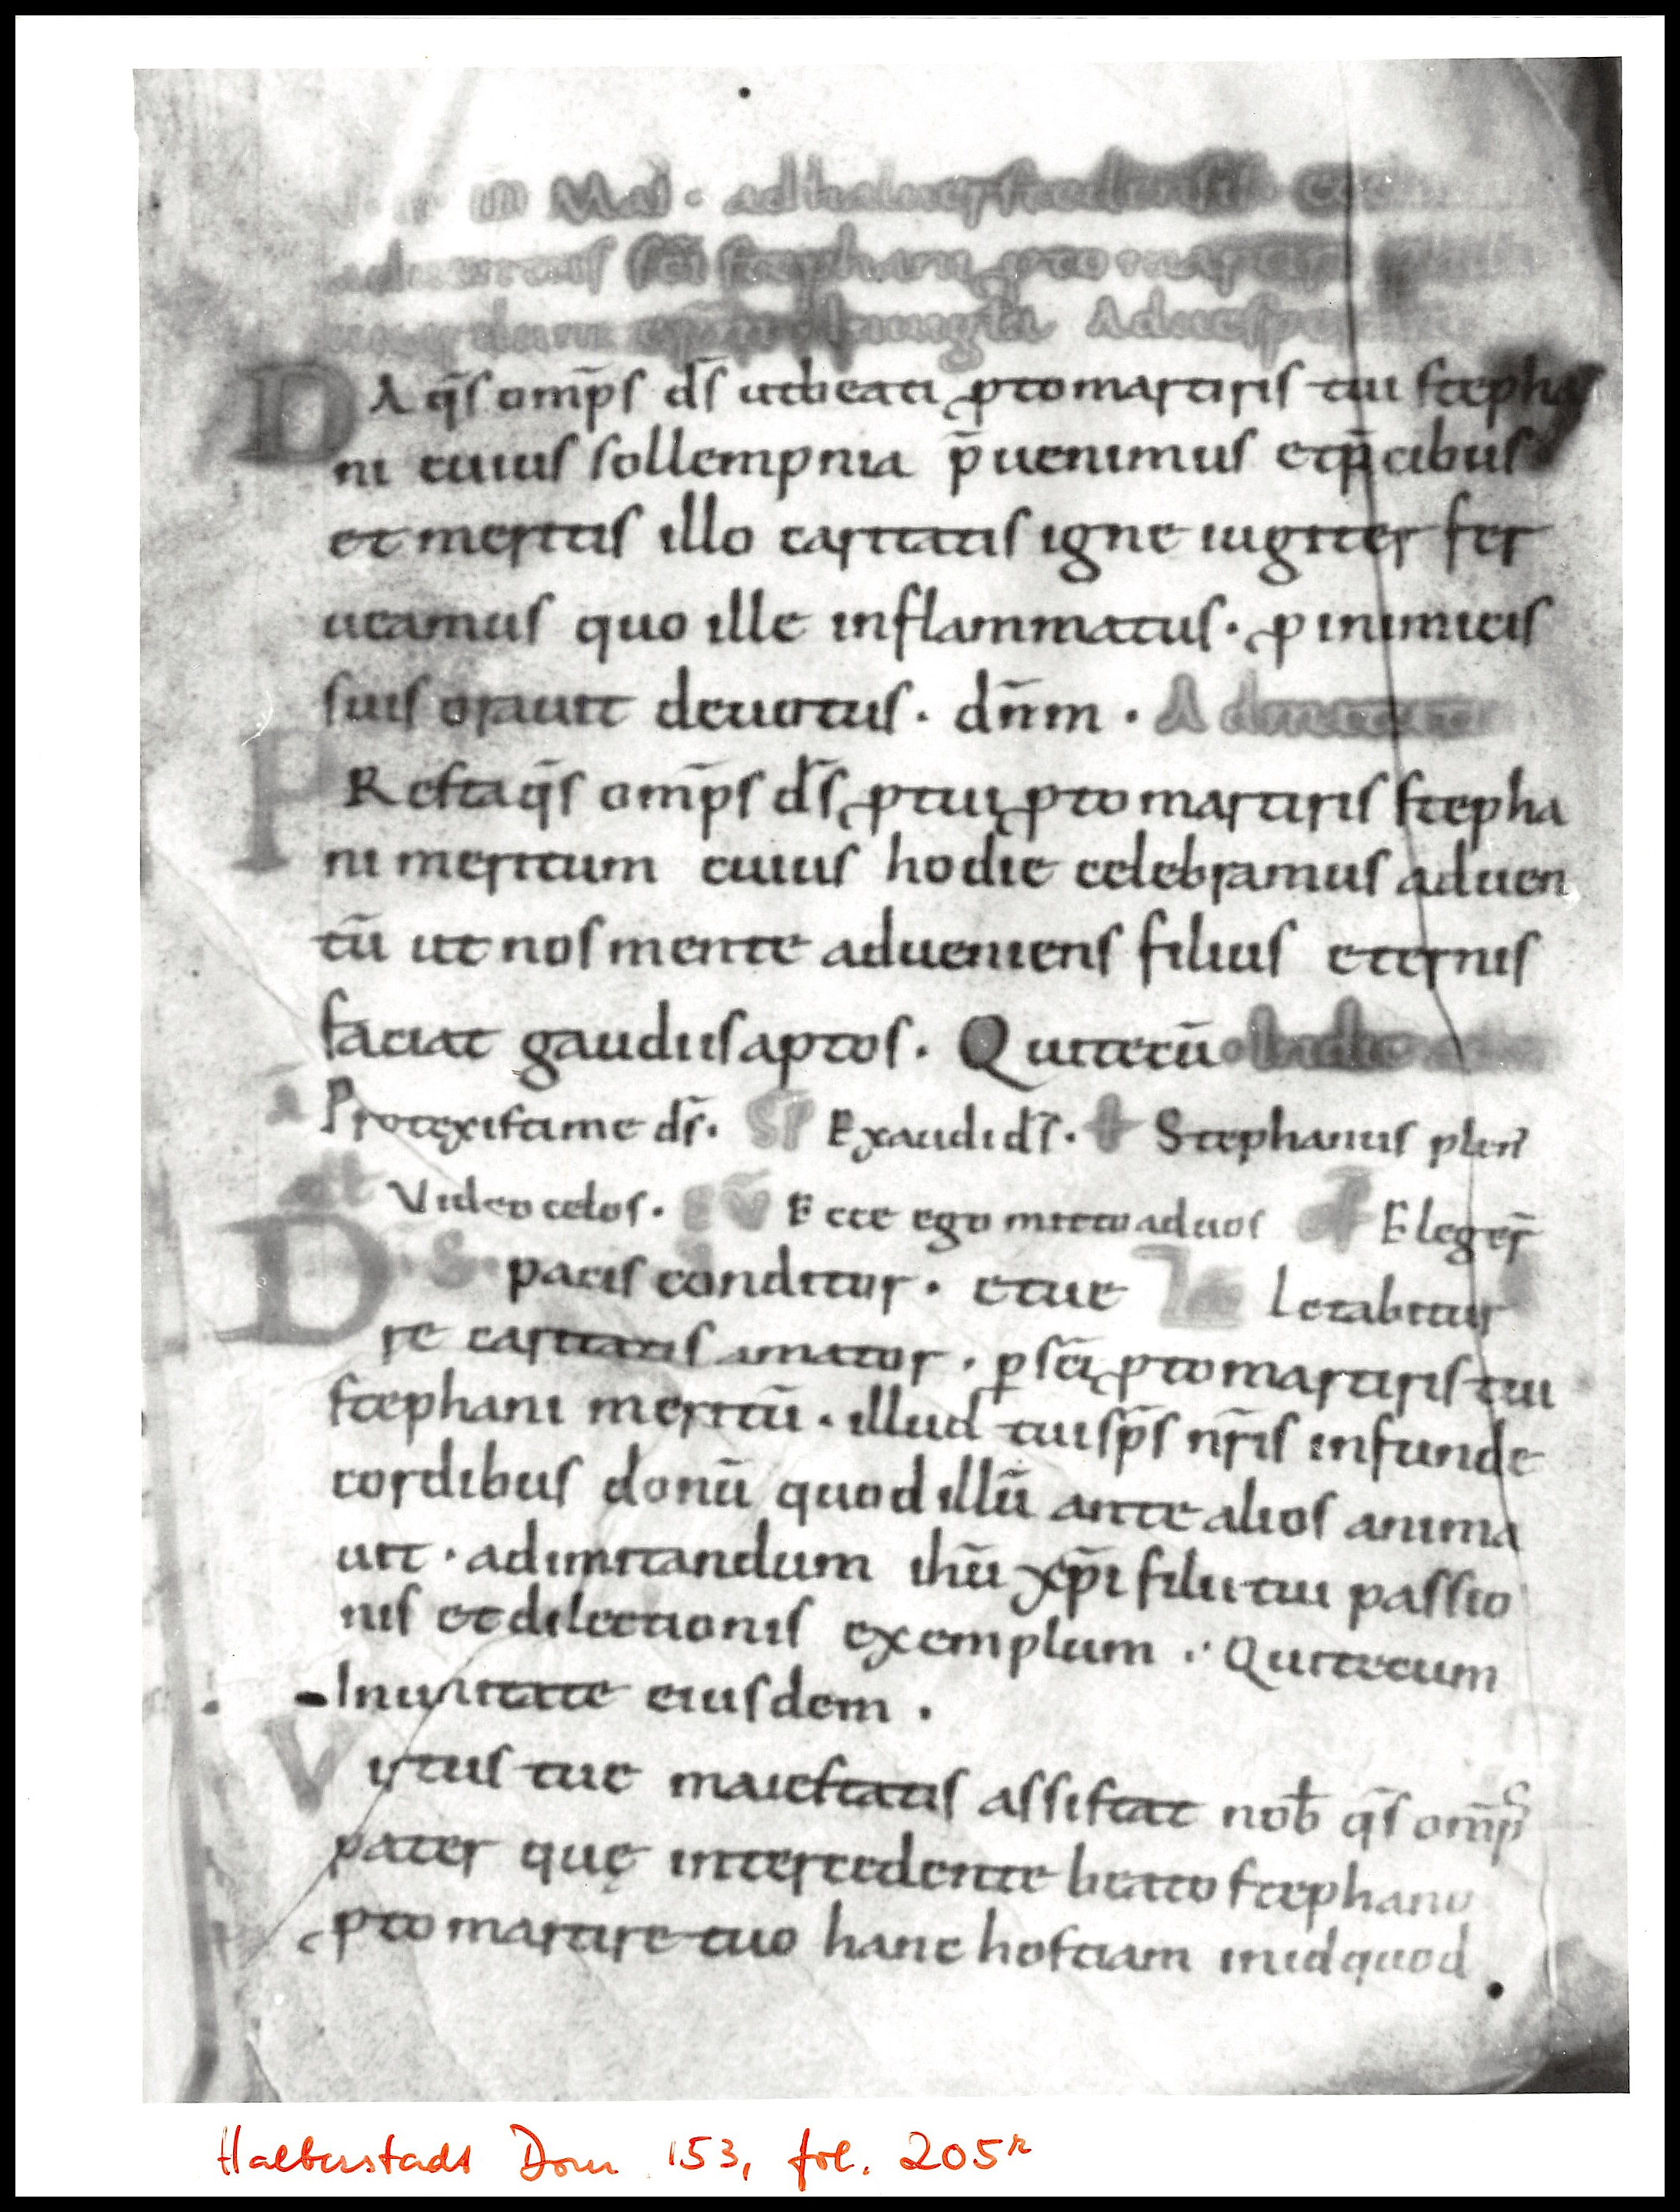 Mai · ad
sci stephani
Ad
DA qs̄ omp̄s ds̄ ut beati ꝓtomartiris tui stepha
ni cuius sollempnia p̄uenimus et p̄cibus
et meritis illo caritatis igne iugiter fer
ueamus quo ille inflammatus · ꝓ inimicis
suis orauit deuotus · dn̄m ·
PResta qs̄ omp̄s ds̄ ꝓ tui ꝓtomartiris stepha
ni meritum cuius hodie celebramus aduen
tū ut nos mente adueniens filius eternis
faciat gaudiis aptos · Qui tecū
Protexisti me ds̄ · Exaudi ds̄ · Stephanus plen̄
Video celos · Ecce ego mitto ad uos Eleger̄
D pacis conditor · et ue letabitur
re caritatis amator · ꝑ sc̄i ꝓtomartiris tui
stephani meritū · illud tui sp̄s nr̄is infunde
cordibus donū quod illū ante alios anima
uit · ad imitandum ihū xp̄i filii tui passio
nis et dilectionis exemplum · Qui tecum
In unitate eiusdem ·
Virtus tue maiestatis assistat nob̄ qs̄ omp̄s
pater quę intercedente beato stephano
ꝓtomartire tuo hanc hostiam in id quod
Halberstadt Dom 153, fol. 205r